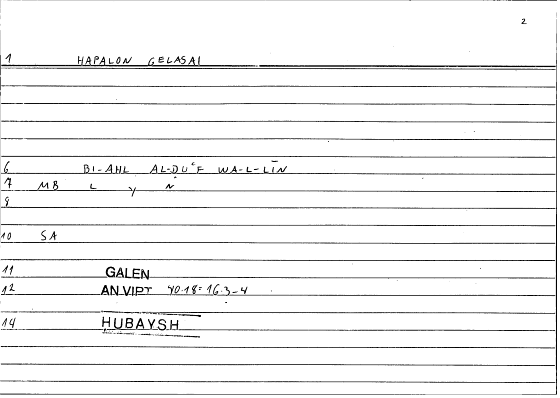 2
1 HAPALON GELASAI
6 BI-AHL AL-ḌUʿF WA-L-LĪN
7 MB L Y N
8
10 SA
11 GALEN
12 AN VIPT 40.18=16.3-4
14 HUBAYSH